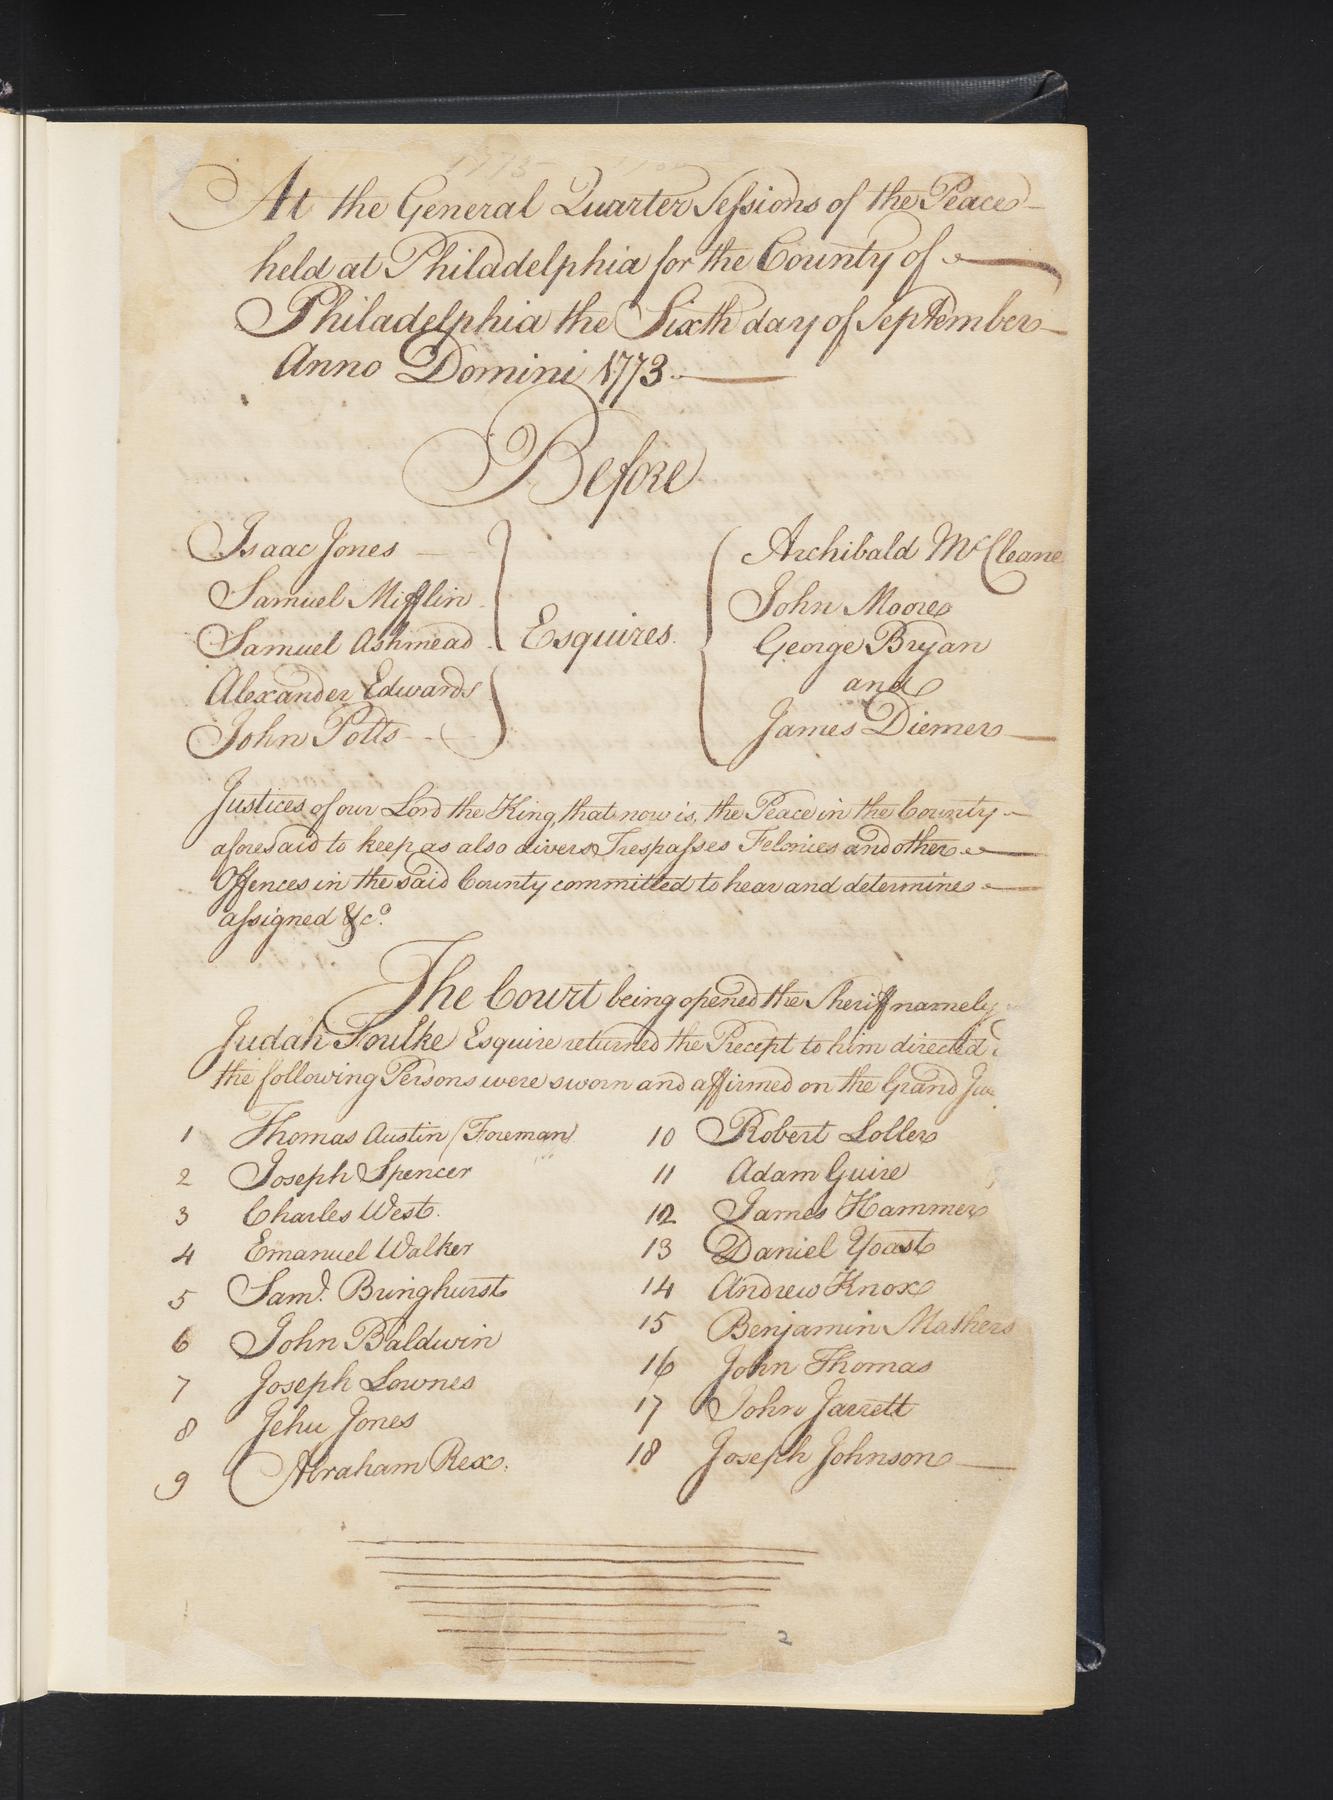 At the General Quarter Sessions of the Peace
held at Philadelphia for the County of
Philadelphia the Sixth day of September
Anno Domini 1773.
Before
Isaac Jones
Samuel Mifflin
Samuel Ashmead
Alexander Edwards
John Potts
Esquires.
Archibald McCleane
John Moore
George Bryan
and
James Diemer
Justices of our Lord the King, that now is, the Peace in the County
aforesaid to keep as also divers Trespasses Felonies and other
Offences in the said County committed to hear and determine
assigned &c.
The Court being opened the Sheriff namely
Judah Foulke Esquire returned the Precept to him directed
the following Persons were sworn and affirmed on the Grand
1 Thomas Austin (Foreman)
2 Joseph Spencer
3 Charles West.
4 Emanuel Walker
5 Saml. Bringhurst
6 John Baldwin
7 Joseph Lownes
8 Jehu Jones
9 Abraham Rex.
10 Robert Loller
11 Adam Guire
12 James Hammer
13 Daniel Yoast
14 Andrew Knox
15 Benjamin Mathers
16 John Thomas
17 John Jarrett
18 Joseph Johnson
2